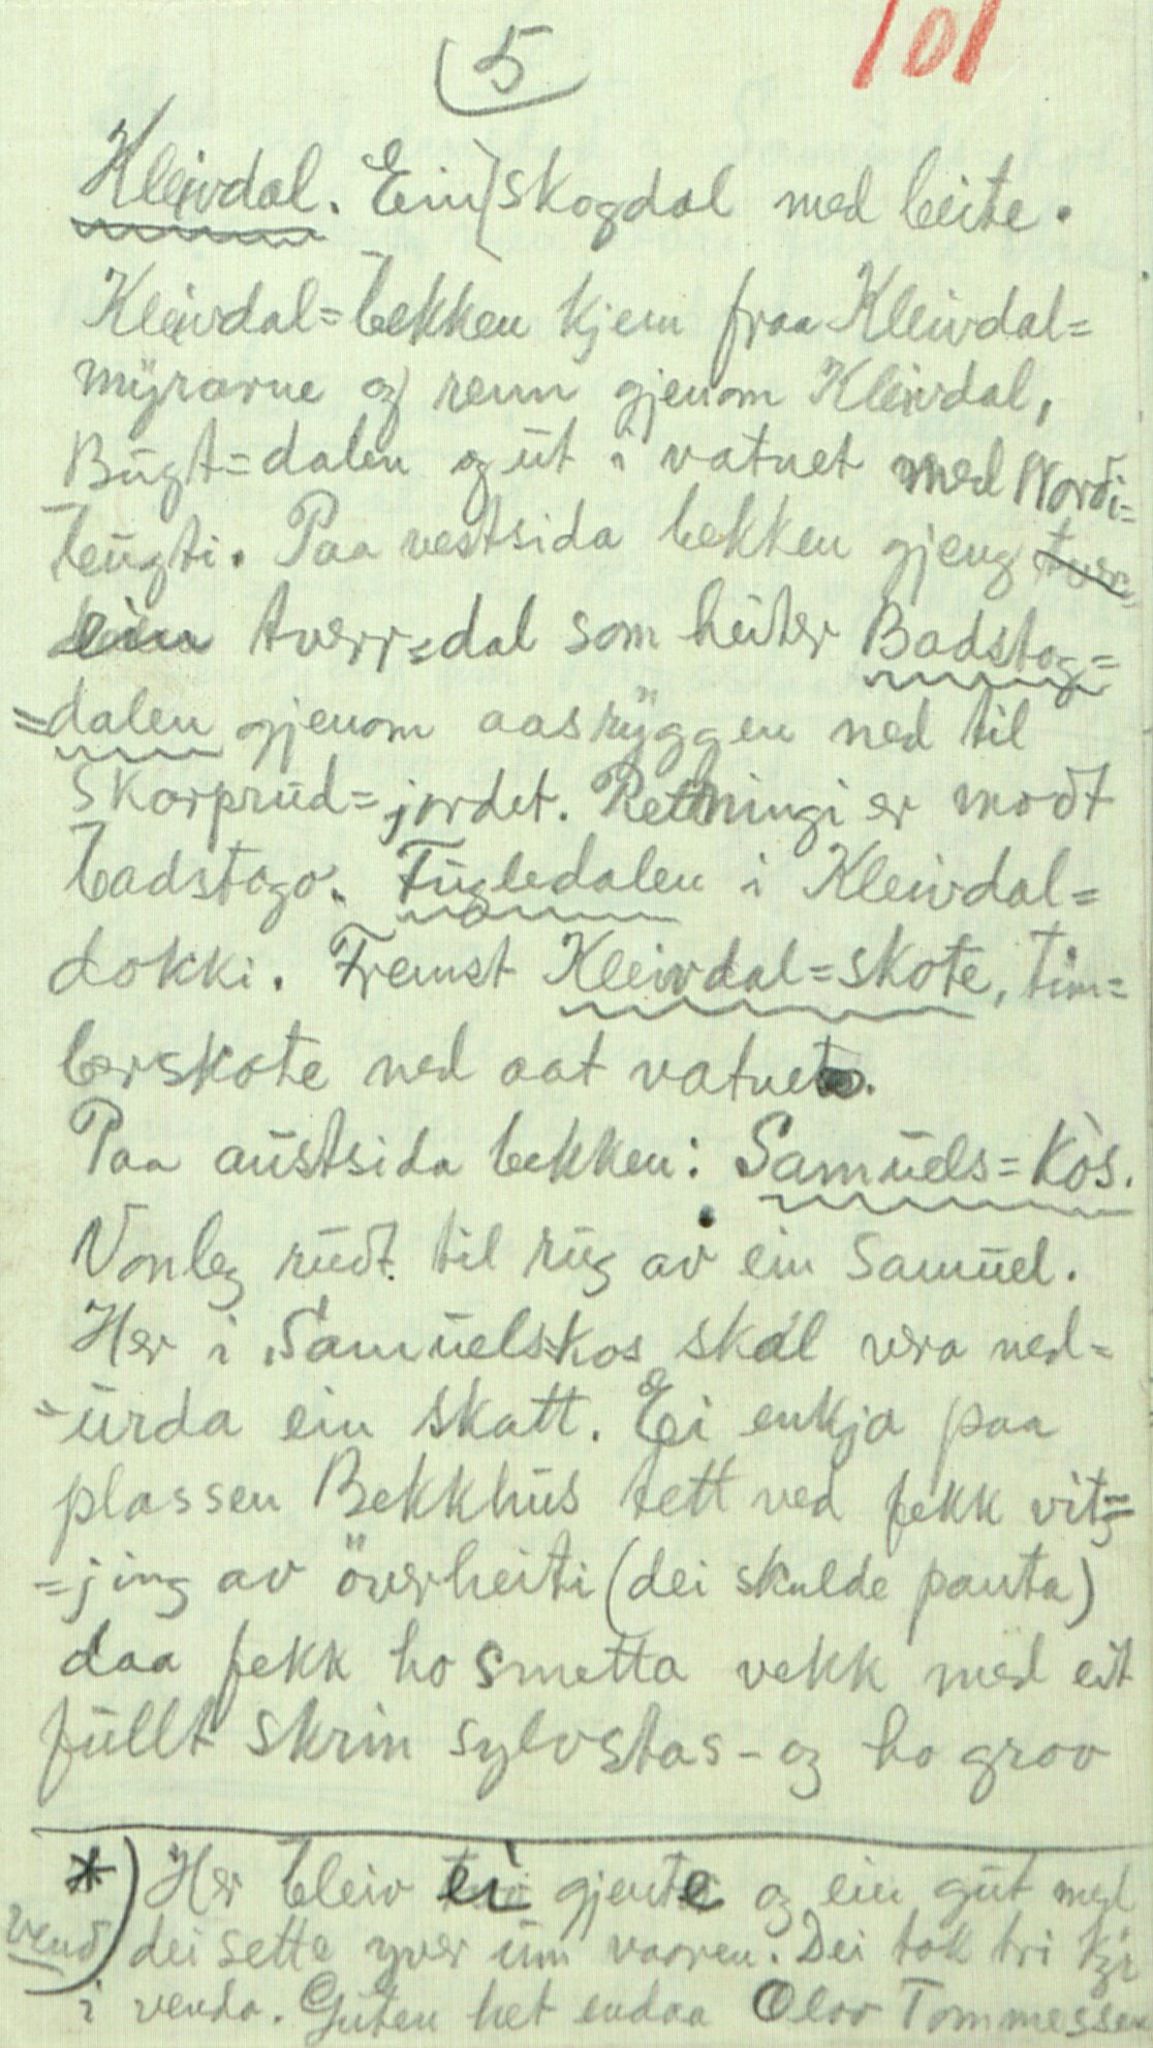 5
101
Kleivdal. Ein skogdal med beite.
Kleivdal=bekken kjem fraa Kleivdal=
myrarne og renn gjenom Kleivdal,
Bugt=dalen og ut i vatnet med Nordi=
bugti. Paa vestsida bekken gjeng tver
ein tverr=dal som heiter Badstog=
=dalen gjenom aasryggen ned til
Skarprud=jordet. Retningi er modt
badstogo. Fugledalen i Kleivdal=
dokki. Fremst Kleivdal=skote, tim=
berskote ned aat vatnet.
Paa austsida bekken: Samuels=kòs.
Vonleg rudt til rug av ein Samuel.
Her i Samuelskos skal vera ned=
=urda ein skatt. Ei enkja paa
plassen Bekkhus tett ved fekk vit=
=jing av överheiti (dei skulde panta)
daa fekk ho smetta vekk med eit
fullt skrin sylvstas - og ho grov
*) Her bleiv ei gjente og ein gut med
dei sette yver um vaaren. Dei tok tri kyr
i venda. Guten het endaa Olav Tommessen
vend